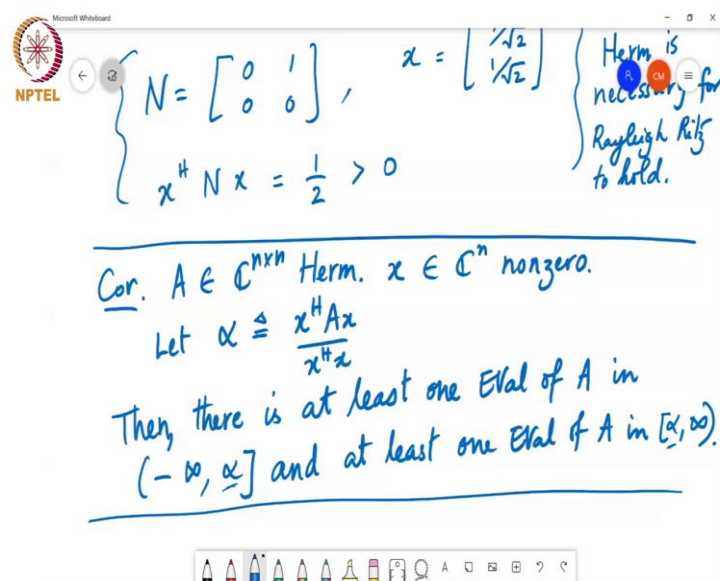 Microsoft Whiteboard
NPTEL
N = [ 0 1
0 0 ] ,
x = [ 1/√2
1/√2 ]
x^H N x = 1/2 > 0
Herm is
necessary for
Rayleigh Ritz
to hold.
Cor. A ∈ ℂ^{n×n} Herm. x ∈ ℂ^n nonzero.
Let α ≜ x^H A x / x^H x
Then, there is at least one Eval of A in
(-∞, α] and at least one Eval of A in [α, ∞).
CM